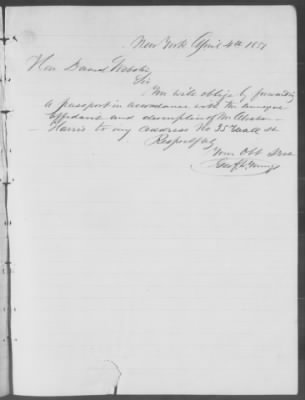 New York April 4th 1851
Hon Daniel Webster
Sir
You will oblige by forwarding
a passport in accordance with the annexed
affidavit and description of Mr
Harris to my address No 35 Wall St
Respectfully
Your Obt Serv
Geo